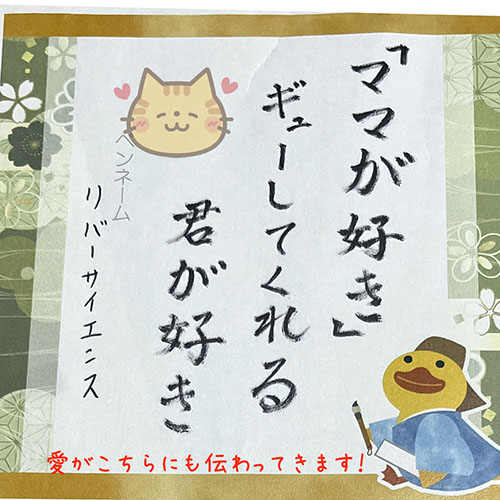 「ママが好き」
ギューしてくれる
君が好き
ペンネーム
リバーサイエンス
愛がこちらにも伝わってきます!